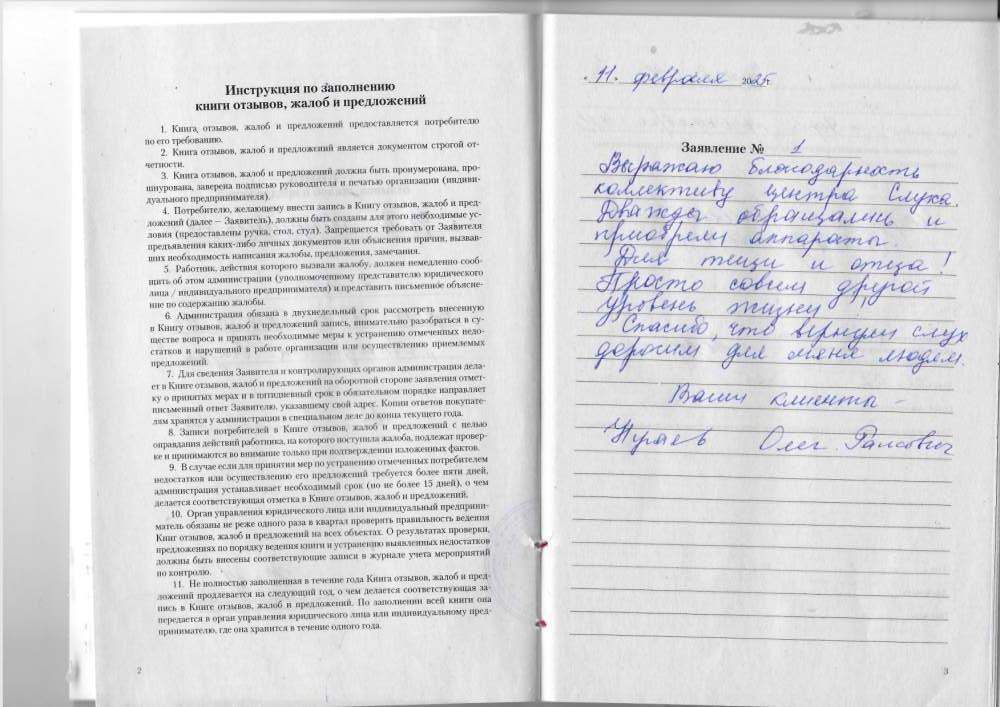 Инструкция по заполнению
книги отзывов, жалоб и предложений
1. Книга, отзывов, жалоб и предложений предоставляется потребителю
по его требованию.
2. Книга отзывов, жалоб и предложений является документом строгой от-
четности.
3. Книга отзывов, жалоб и предложений должна быть пронумерована, про-
шнурована, заверена подписью руководителя и печатью организации (индиви-
дуального предпринимателя).
4. Потребителю, желающему внести запись в Книгу отзывов, жалоб и пред-
ложений (далее – Заявитель), должны быть созданы для этого необходимые ус-
ловия (предоставлены ручка, стол, стул). Запрещается требовать от Заявителя
предъявления каких-либо личных документов или объяснения причин, вызвав-
ших необходимость написания жалобы, предложения, замечания.
5. Работник, действия которого вызвали жалобу, должен немедленно сооб-
щить об этом администрации (уполномоченному представителю юридического
лица / индивидуального предпринимателя) и представить письменное объясне-
ние по содержанию жалобы.
6. Администрация обязана в двухнедельный срок рассмотреть внесенную
в Книгу отзывов, жалоб и предложений запись, внимательно разобраться в су-
ществе вопроса и принять необходимые меры к устранению отмеченных недо-
статков и нарушений в работе организации или осуществлению приемлемых
предложений.
7. Для сведения Заявителя и контролирующих органов администрация дела-
ет в Книге отзывов, жалоб и предложений на оборотной стороне заявления отмет-
ку о принятых мерах и в пятидневный срок в обязательном порядке направляет
письменный ответ Заявителю, указавшему свой адрес. Копии ответов покупате-
лям хранятся у администрации в специальном деле до конца текущего года.
8. Записи потребителей в Книге отзывов, жалоб и предложений с целью
оправдания действий работника, на которого поступила жалоба, подлежат провер-
ке и принимаются во внимание только при подтверждении изложенных фактов.
9. В случае если для принятия мер по устранению отмеченных потребителем
недостатков или осуществлению его предложений требуется более пяти дней,
администрация устанавливает необходимый срок (но не более 15 дней), о чем
делается соответствующая отметка в Книге отзывов, жалоб и предложений.
10. Орган управления юридического лица или индивидуальный предприни-
матель обязаны не реже одного раза в квартал проверять правильность ведения
Книг отзывов, жалоб и предложений на всех объектах. О результатах проверки,
предложениях по порядку ведения книги и устранению выявленных недостатков
должны быть внесены соответствующие записи в журнале учета мероприятий
по контролю.
11. Не полностью заполненная в течение года Книга отзывов, жалоб и пред-
ложений продлевается на следующий год, о чем делается соответствующая за-
пись в Книге отзывов, жалоб и предложений. По заполнении всей книги она
передается в орган управления юридического лица или индивидуальному пред-
принимателю, где она хранится в течение одного года.
2
"11" февраля 2025 г.
Заявление № 1
Выражаю благодарность
коллективу центра Слуха.
Дважды обращались и
приобрели аппараты.
Для тещи и отца!
Просто совсем другой
уровень жизни!
Спасибо, что вернули слух
дорогим для меня людям.
Ваши клиенты –
Олег Раисович
3